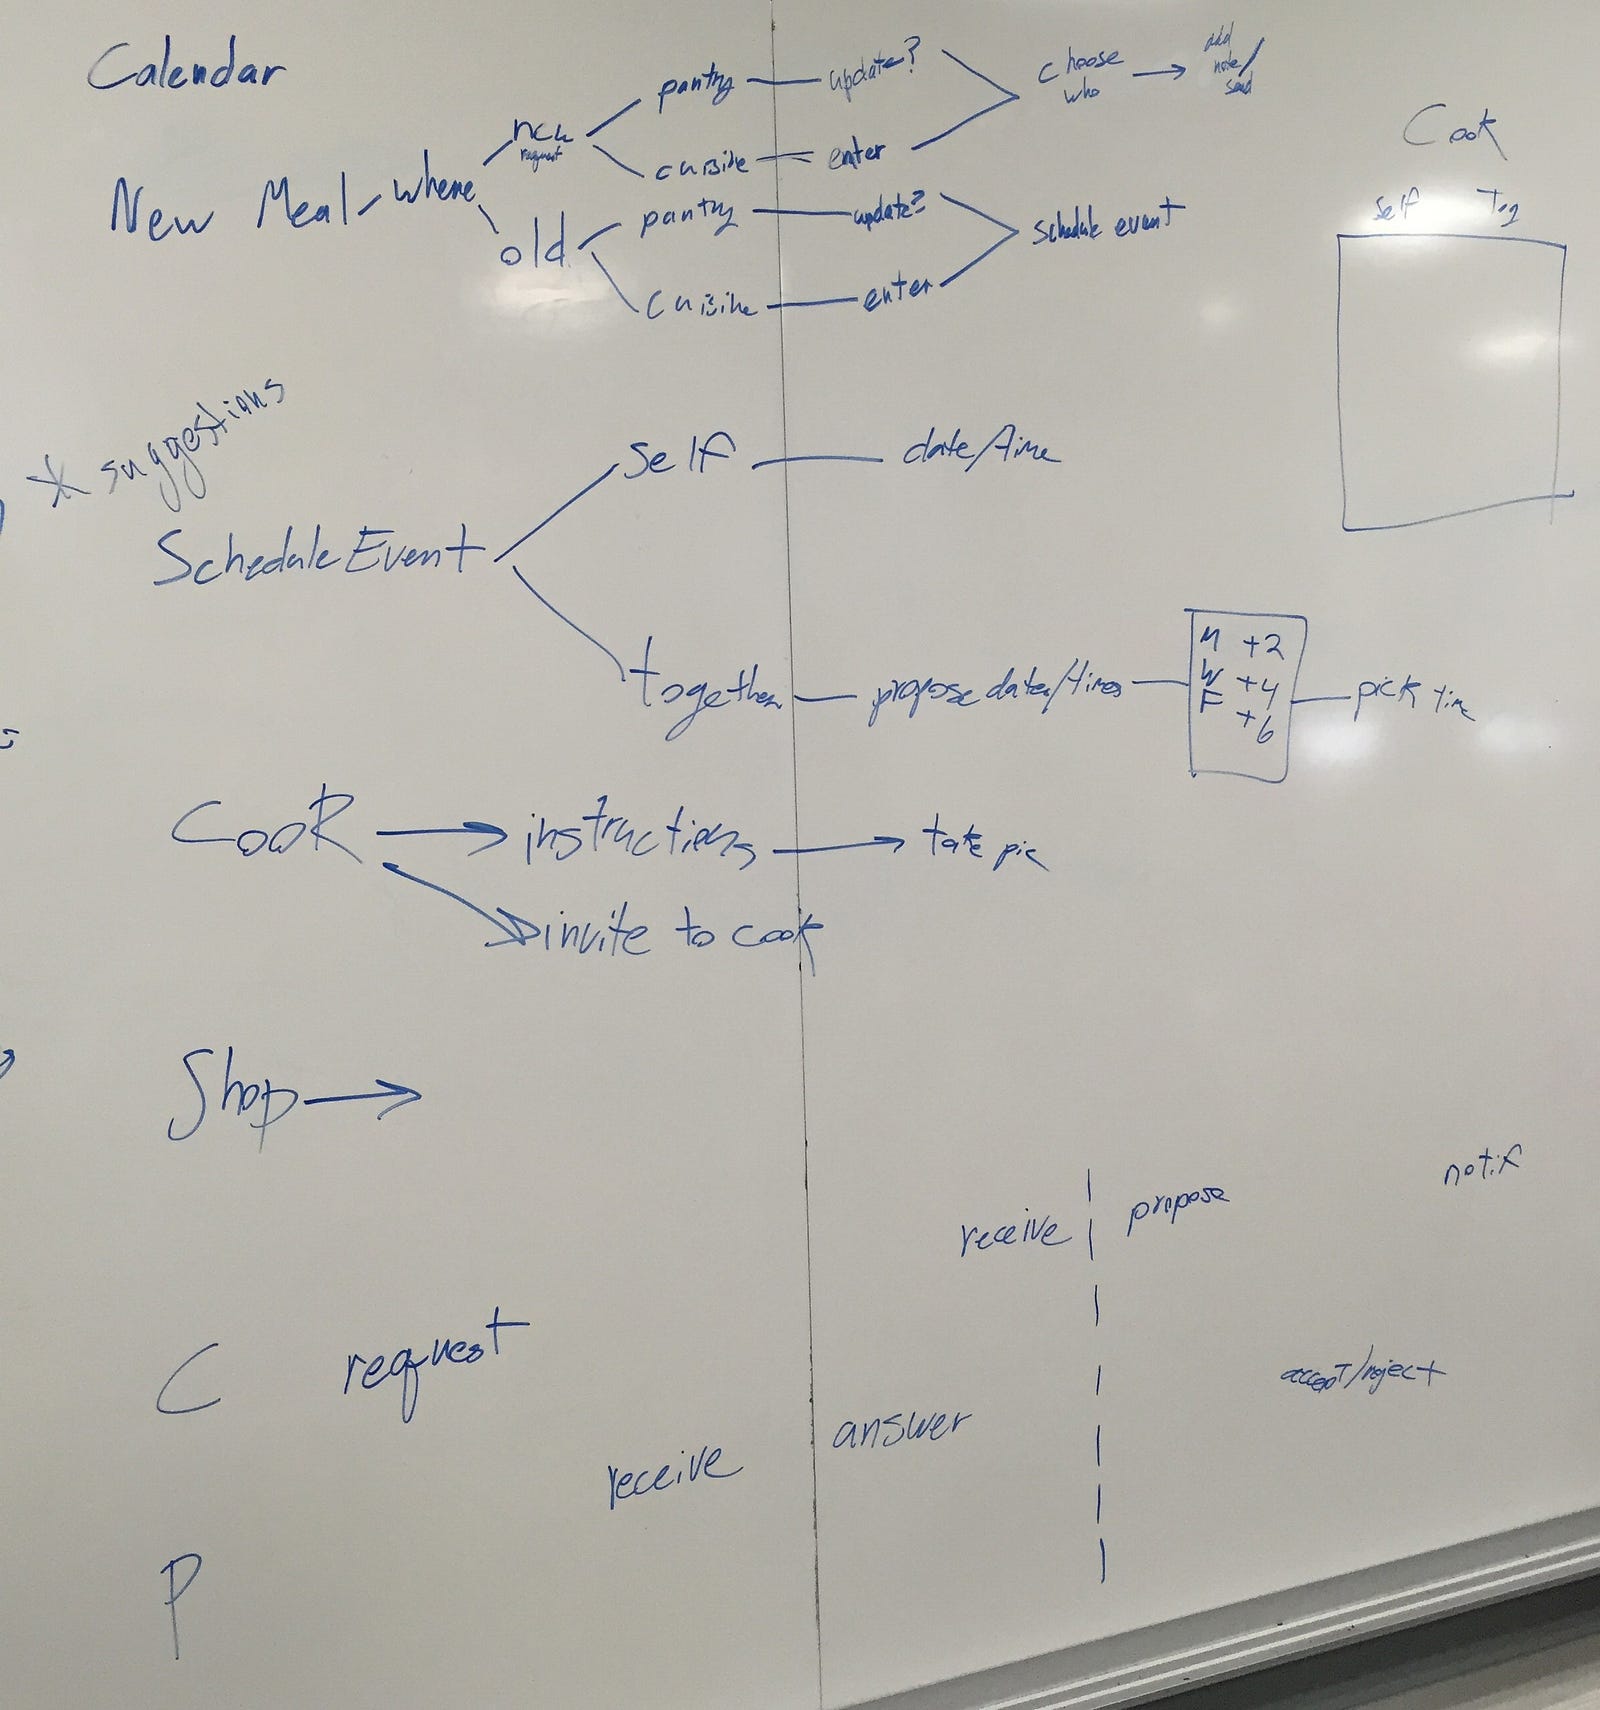 Calendar
New Meal where
new
request
pantry update?
cuisine enter
choose
who
add
note/
send
old
pantry update?
cuisine enter
schedule event
Cook
Self Tog
* suggestions
Schedule Event
Self date/time
together propose dates/times
M +2
W +4
F +6
pick time
Cook instructions take pic
invite to cook
Shop
receive propose notif
C request
receive answer accept/reject
P